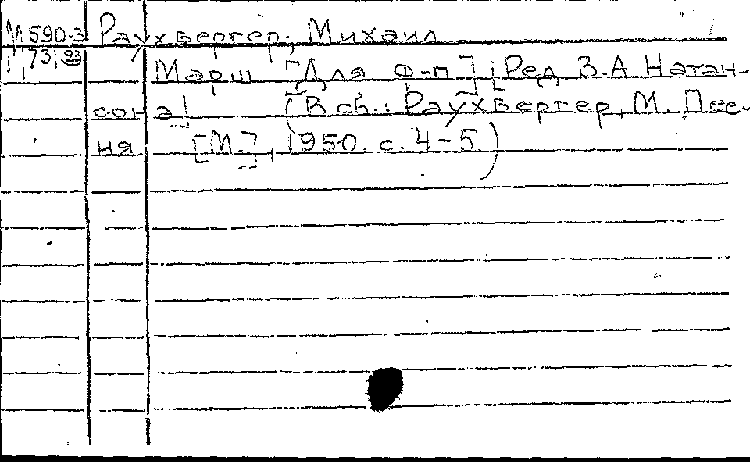 М 590-3 Раухвергер, Михаил
73, 93
Марш [Для ф-п] [Ред З.А Натан-
сона] (В сб.: Раухвергер, М. Пес-
ня [М.], 1950. с. 4-5)